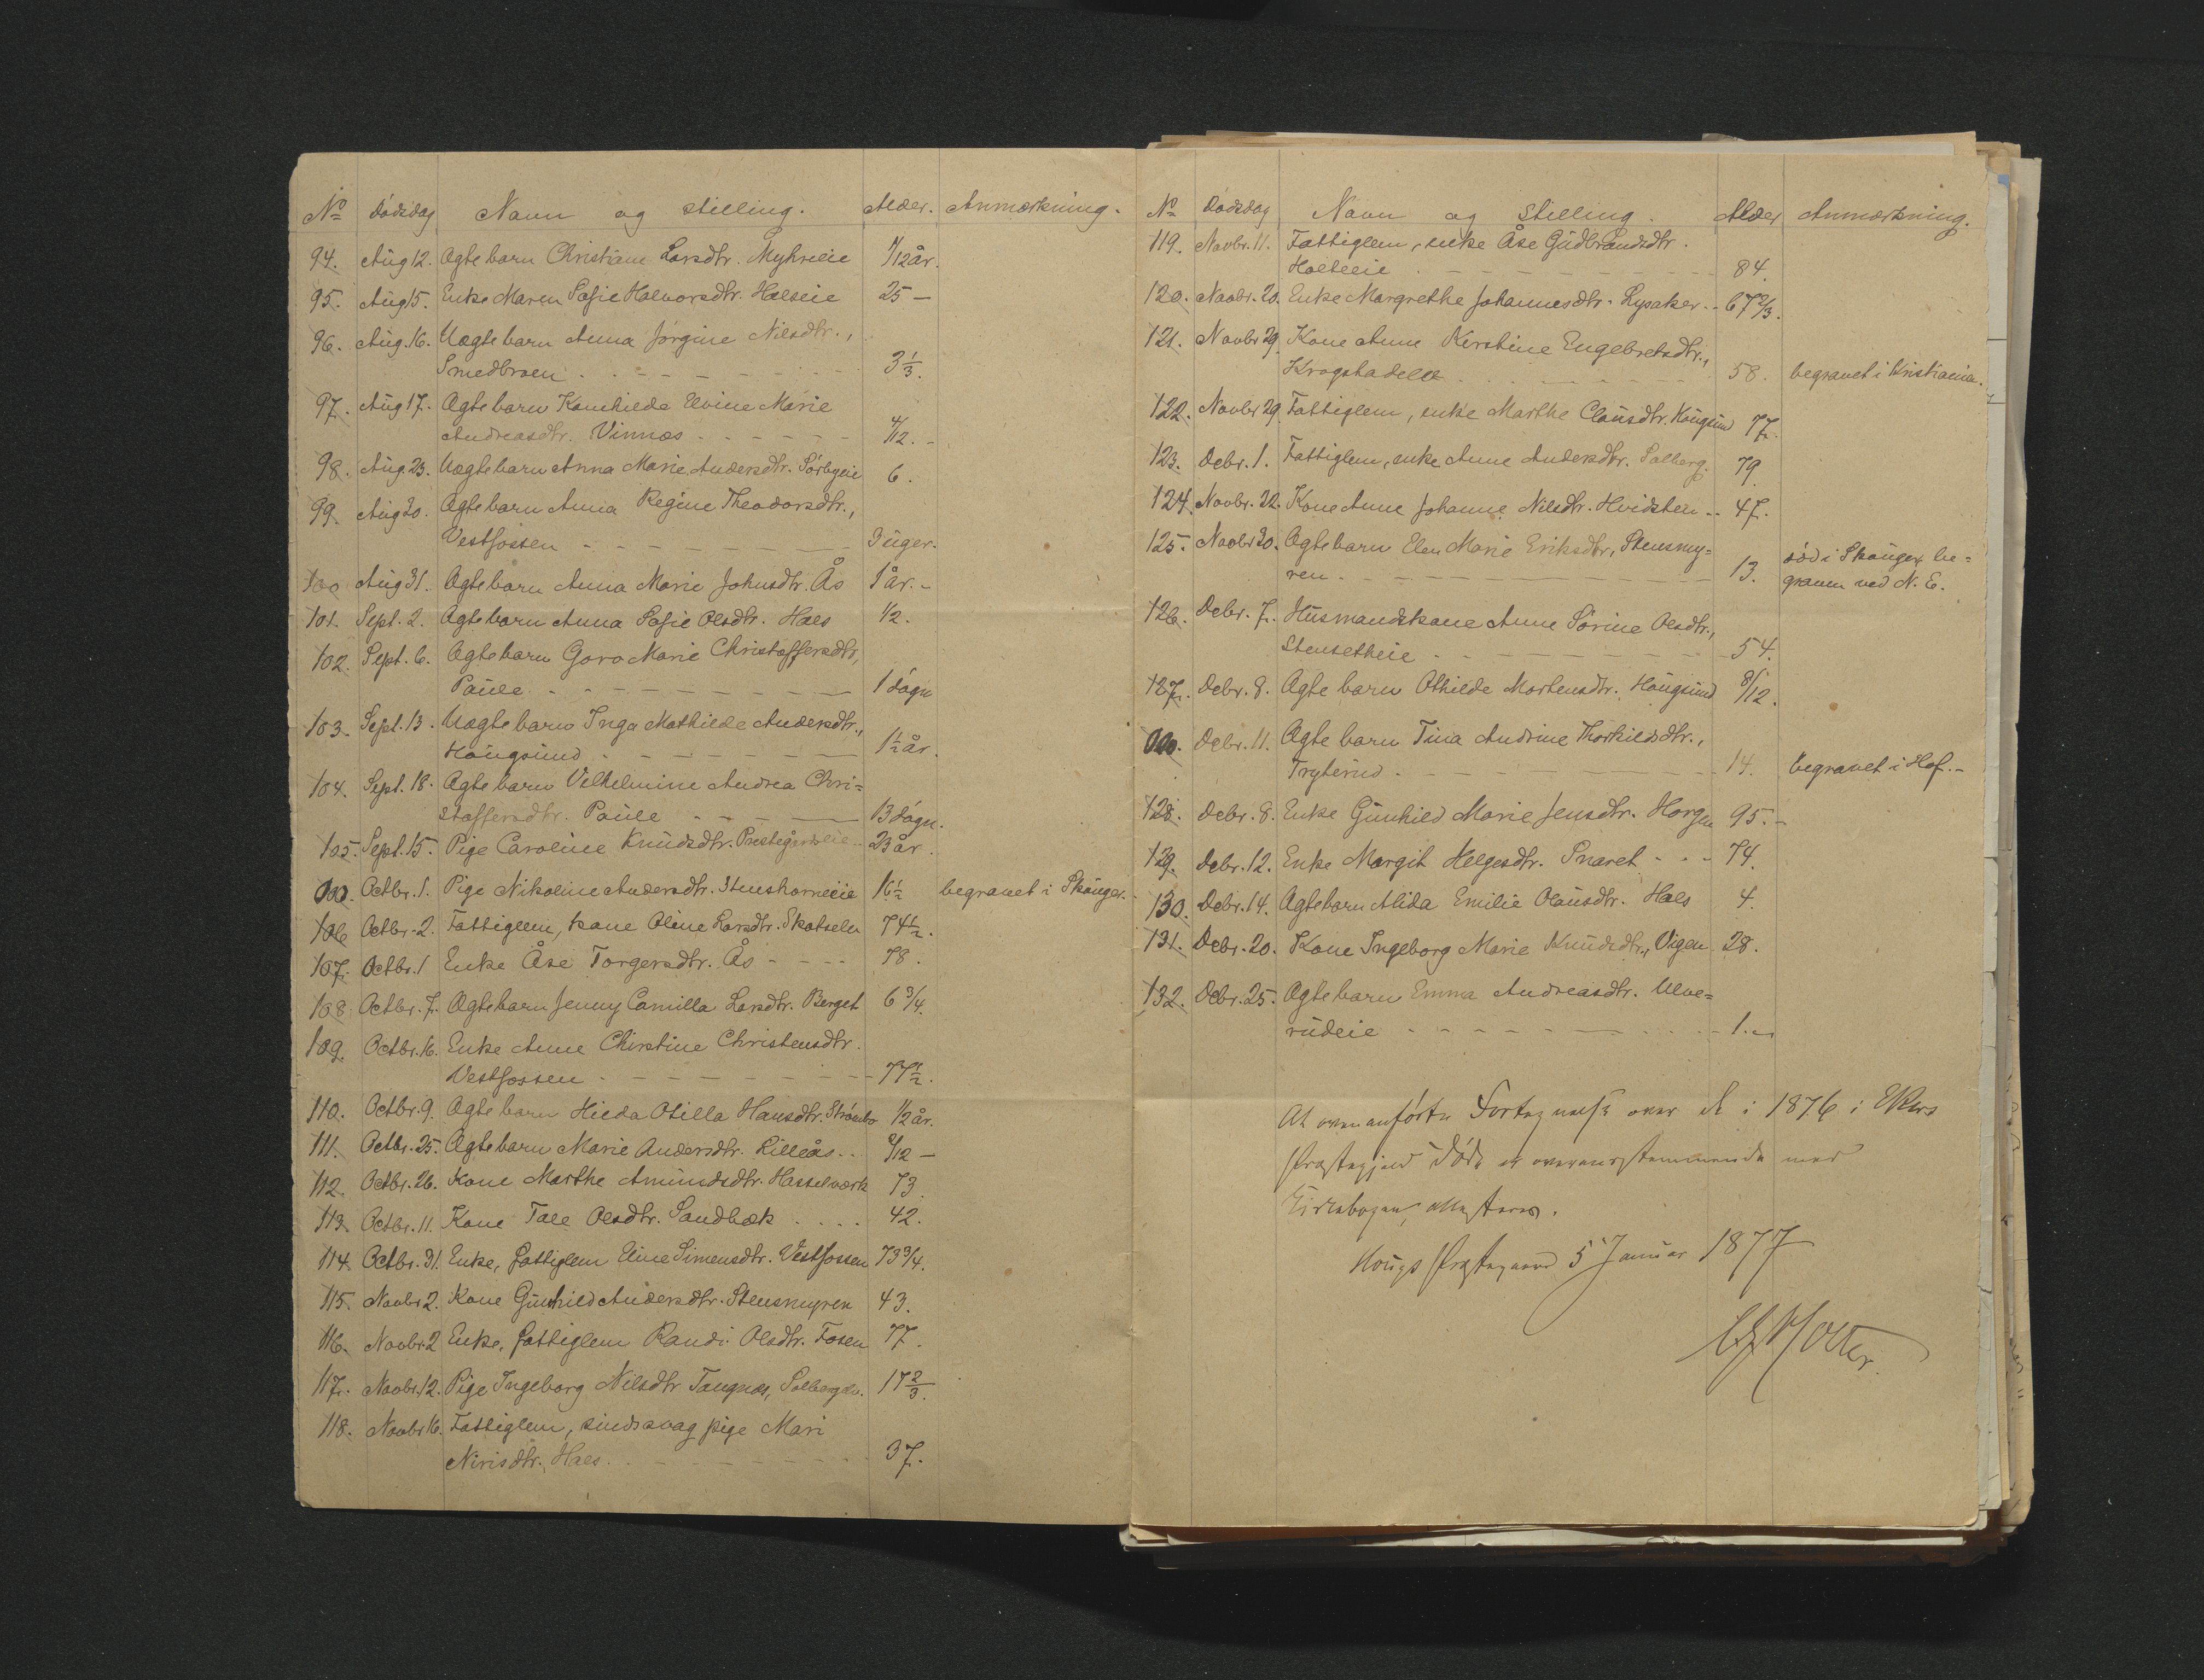 No Dødsdag Navn og stilling. Alder. Anmærkning.
94. Aug 12. Ægte barn Christiane Larsdtr. Myhreeie /12 år.
95. Aug 15. Enke Maren Sofie Halvorsdtr. Halseie 25 –
96. Aug. 16. Uægte barn Anna Jørgine Nilsdtr.,
Smedbroen - - - 3 1/3.
97. Aug 17. Ægte barn Kamhilda Elvine Marie
Andreasdtr. Vinnes - - - 4/12. -
98. Aug. 23. Uægte barn Anna Marie Andersdtr. Sörbyeie 6.
99. Aug 30. Ægte barn Anna Regine Theodorsdtr.,
Vestfossen - - - 3 uger.
100 Aug 31. Ægte barn Anna Marie Johnsdtr. Ås 1 år. -
101. Sept. 2. Ægte barn Anna Sofie Olsdtr. Hals 1/2.
102. Sept. 6. Ægte barn Goro Marie Christoffersdtr,
Paule - - - 1 døgn
103. Sept. 13. Uægte barn Inga Mathilde Andersdtr.,
Hougsund - - - 1 1/2 år.
104. Sept. 18. Ægte barn Vilhelmine Andrea Chri=
stoffersdtr. Paule - - - 13 døgn.
105. Sept. 15. Pige Caroline Knudsdtr. Prestegårdseie 23 år.
000. Octbr. 1. Pige Nikoline Andersdtr. Stenshorneeie 16 1/2 begravet i Skouger.
106 Octbr. 2. Fattiglem, kone Oline Larsdtr. Skotselv 74 1/2.
107. Octbr. 1 Enke Åse Torgersdtr. Ås - - - 78.
108. Octbr. 7. Ægte barn Jenny Camilla Larsdtr. Berget 6 3/4.
109. Octbr. 16. Enke Anne Chirstine Christensdtr.
Vestfossen - - - 77 1/2.
110. Octbr. 9. Ægte barn Hilda Otilla Hansdtr. Strömbo 1/2 år.
111. Octbr. 25. Ægte barn Marie Andersdtr. Lilleås.. /12 –
112. Octbr. 26. Kone Marthe Amundsdtr. Hasselværk 73.
113. Octbr. 11. Kone Tale Olsdtr. Sandbæk .... 42.
114. Octbr. 31. Enke, fattiglem Eline Simensdtr. Vestfossen 73 3/4.
115. Novbr 2. Kone Gunhild Andersdtr. Stensmyren 43.
116. Novbr 2 Enke, fattiglem Randi Olsdtr. Fosen 77.
117. Novbr. 12. Pige Ingeborg Nilsdtr Tangnes, Solbergelv. 17 2/3.
118. Novbr 16. Fattiglem, sindssvag pige Mari
Nirisdtr., Hals. - - - 37.
No Dødsdag Navn og Stilling. Alder Anmærkning.
119. Novbr. 11. Fattiglem, enke Åse Gudbrandsdtr.
Holteeie - - - 84.
120. Novbr. 20. Enke Margrethe Johannesdtr. Lysaker - - 67 2/3.
121. Novbr 29. Kone Anne Kirstine Engebretsdtr.,
Krogstadelv - - - 58. begravet i Kristiania.
122. Novbr 29. Fattiglem, enke Marthe Clausdtr. Hougsund 77.
123. Debr. 1. Fattiglem, enke Anne Andersdtr. Solberg. 79.
124. Novbr. 22. Kone Anne Johanne Nilsdtr. Hvidsten - - 47.
125. Novbr 30. Ægte barn Elen Marie Eriksdtr., Stensmy=
ren - - - 13. död i Skouger, be=
graven ved N. E.
126. Debr. 7. Husmandskone Anne Sörine Olsdtr.,
Stensetheie - - - 54.
127. Debr. 8. Ægte barn Othilde Mortensdtr. Hougsund 8/12.
000. Debr. 11. Ægte barn Tina Andrine Thorkildsdtr.,
Tryterud - - - 14. begravet i Hof. -
128. Debr. 8. Enke Gunhild Marie Jensdtr. Horgen 95. -
129. Debr. 12. Enke Margit Helgesdtr. Snaret - - - 74.
130. Debr. 14. Ægte barn Alida Emilie Olausdtr. Hals 4.
131. Debr. 20. Kone Ingeborg Marie Knudsdtr., Vigen 28.
132. Debr. 25. Ægte barn Emma Andreasdtr. Ulve=
rudeie - - - 1.
At ovenanførte Fortegnelse over de i 1876 i Ekers
Præstegjeld døde er overensstemmende med
Kirkebogen, attesteres.
Hougs Præstegaard 5 Januar 1877